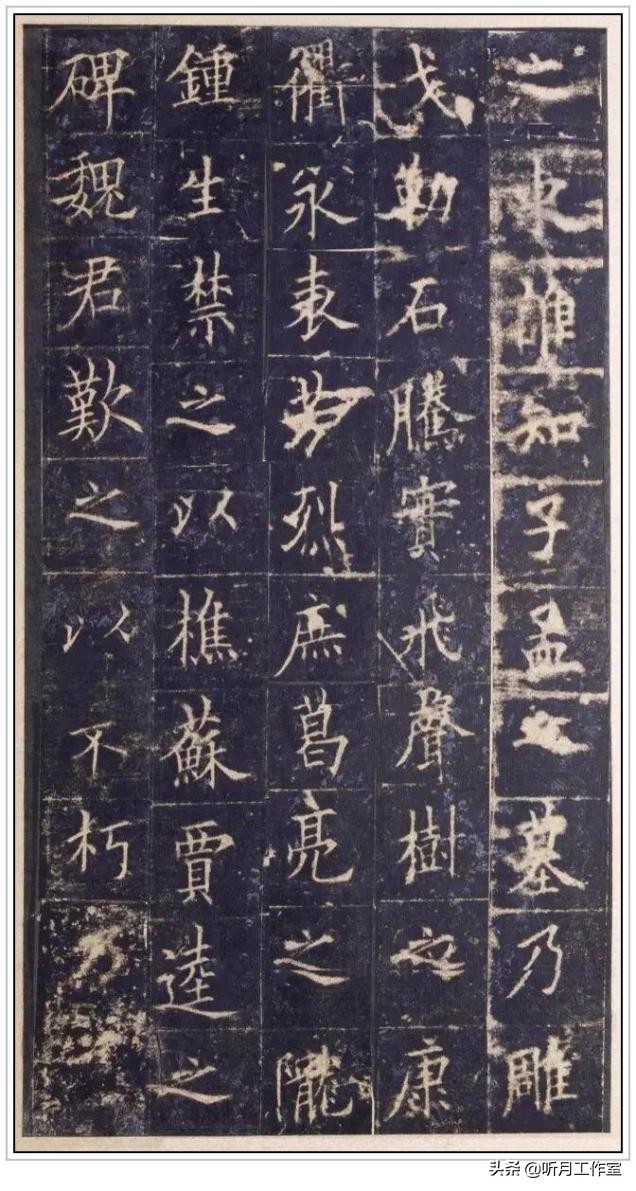 之東誰知子孟之墓乃雕
戈勒石騰實飛聲樹之康
衢永表芳烈庶葛亮之隴
鍾生禁之以樵蘇賈逵之
碑魏君歎之以不朽乃
头条 @听月工作室